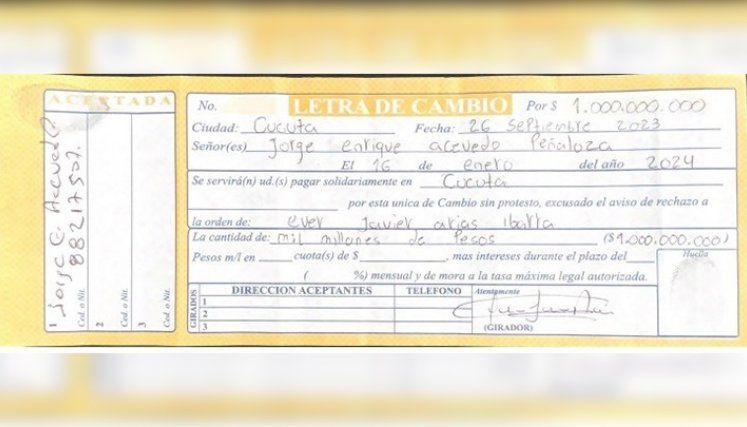 ACEPTADA
1 Jorge E. Acevedo P
88217507.
Ced. o Nit.
2
Ced. o Nit.
3
Ced. o Nit.
No. LETRA DE CAMBIO Por $ 1.000.000.000
Ciudad: Cucuta Fecha: 26 Septiembre 2023
Señor(es) Jorge enrique acevedo Peñaloza
El 16 de enero del año 2024
Se servirá(n) ud.(s) pagar solidariamente en Cucuta
por esta unica de Cambio sin protesto, excusado el aviso de rechazo a
la orden de: ever Javier arias Ibarra
La cantidad de: mil millones de Pesos ($1.000.000.000)
Pesos m/l en cuota(s) de $ , mas intereses durante el plazo del
( %) mensual y de mora a la tasa máxima legal autorizada.
Huella
DIRECCION ACEPTANTES TELEFONO Atentamente
GIRADOS
1
2
3
(GIRADOR)